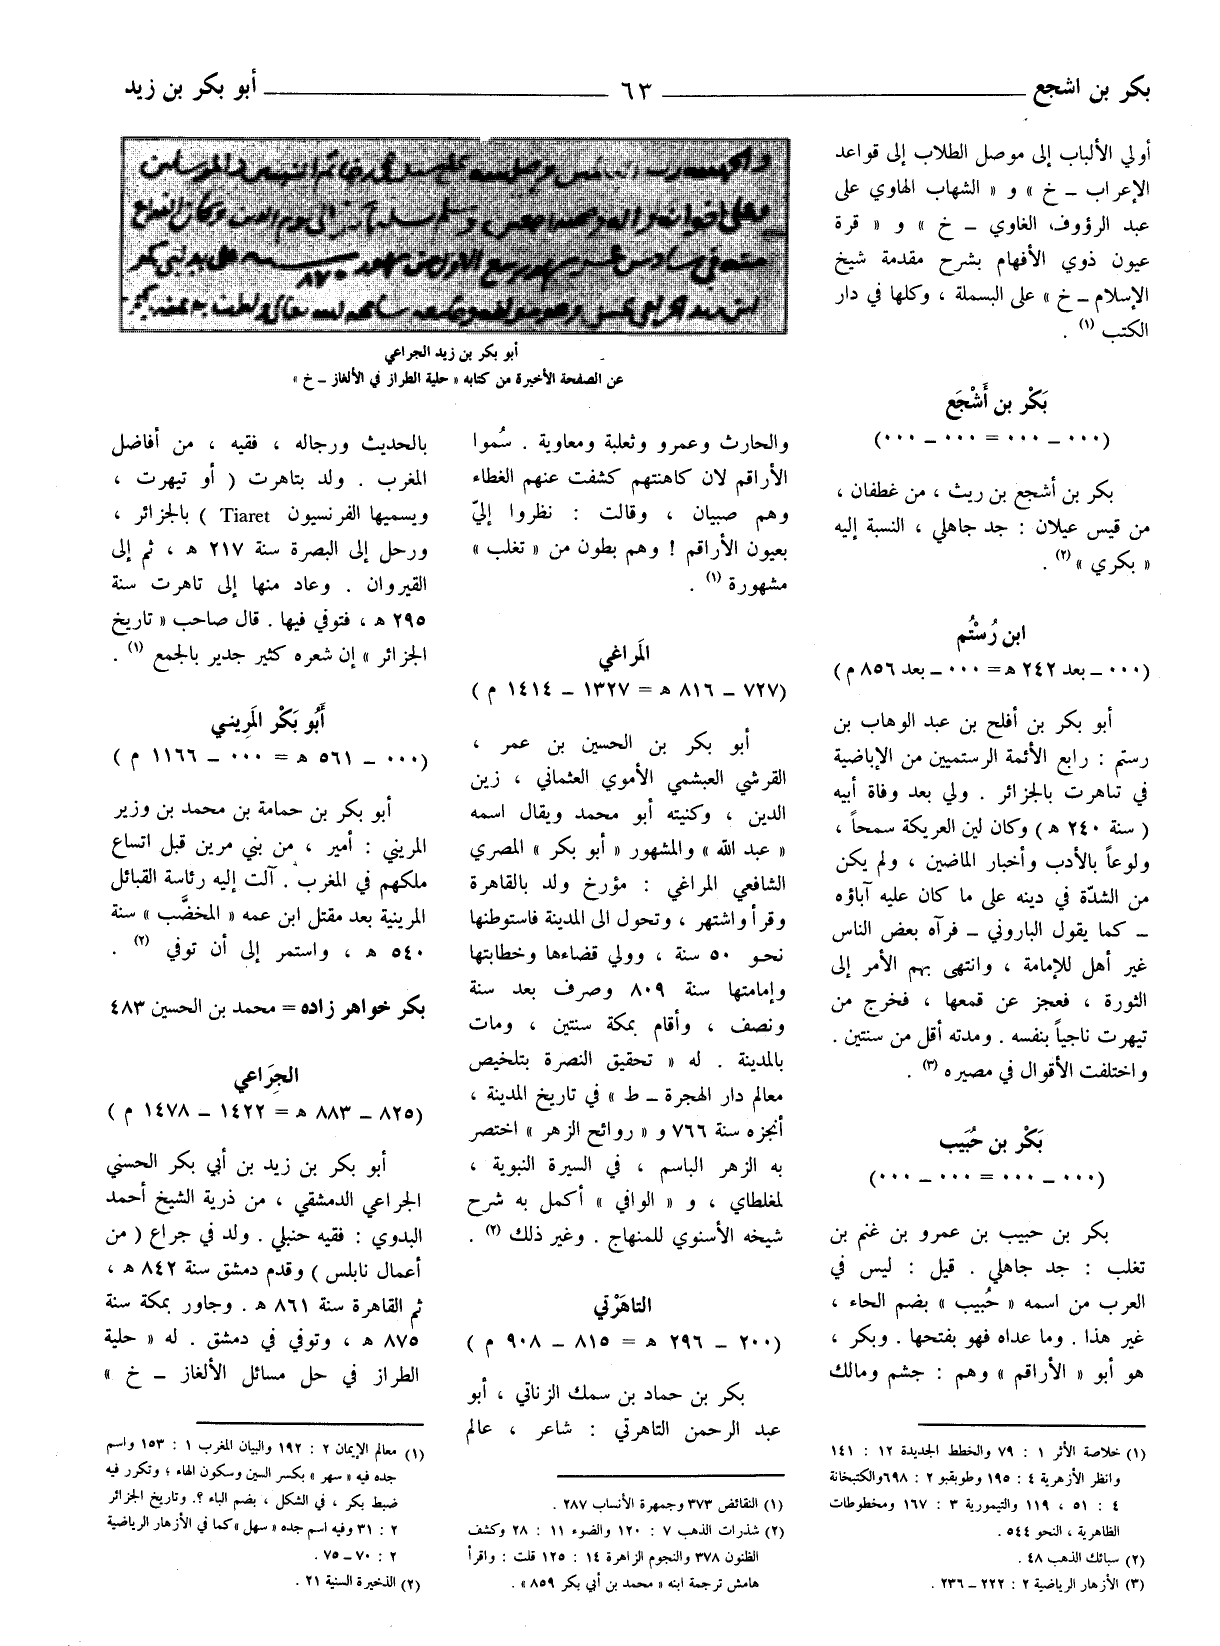 بكر بن اشجع
٦٣
أبو بكر بن زيد
أولي الألباب إلى موصل الطلاب إلى قواعد
الإعراب ــ خ » و « الشهاب الهاوي على
عبد الرؤوف الغاوي ــ خ » و « قرة
عيون ذوي الأفهام بشرح مقدمة شيخ
الإسلام ــ خ » على البسملة ، وكلها في دار
الكتب (١) .
بَكْر بن أَشْجَع
(٠٠٠ ــ ٠٠٠ = ٠٠٠ ــ ٠٠٠)
بكر بن أشجع بن ريث ، من غطفان ،
من قيس عيلان : جد جاهلي ، النسبة إليه
« بكري » (٢) .
ابن رُسْتُم
(٠٠٠ ــ بعد ٢٤٢ ه‍ = ٠٠٠ ــ بعد ٨٥٦ م)
أبو بكر بن أفلح بن عبد الوهاب بن
رستم : رابع الأئمة الرستميين من الإباضية
في تاهرت بالجزائر . ولي بعد وفاة أبيه
( سنة ٢٤٠ ه‍ ) وكان لين العريكة سمحاً ،
ولوعاً بالأدب وأخبار الماضين ، ولم يكن
من الشدّة في دينه على ما كان عليه آباؤه
ــ كما يقول الباروني ــ فرآه بعض الناس
غير أهل للإمامة ، وانتهى بهم الأمر إلى
الثورة ، فعجز عن قمعها ، فخرج من
تيهرت ناجياً بنفسه . ومدته أقل من سنتين .
واختلفت الأقوال في مصيره (٣) .
بَكْر بن حُبَيب
(٠٠٠ ــ ٠٠٠ = ٠٠٠ ــ ٠٠٠)
بكر بن حبيب بن عمرو بن غنم بن
تغلب : جد جاهلي . قيل : ليس في
العرب من اسمه « حُبيب » بضم الحاء ،
غير هذا . وما عداه فهو بفتحها . وبكر ،
هو أبو « الأراقم » وهم : جشم ومالك
(١) خلاصة الأثر ١ : ٧٩ والخطط الجديدة ١٢ : ١٤١
وانظر الأزهرية ٤ : ١٩٥ وطوبقبو ٢ : ٦٩٨ والكتبخانة
٤ : ٥١ ، ١١٩ والتيمورية ٣ : ١٦٧ ومخطوطات
الظاهرية ، النحو ٥٤٤ .
(٢) سبائك الذهب ٤٨ .
(٣) الأزهار الرياضية ٢ : ٢٢٢ ــ ٢٣٦ .
أبو بكر بن زيد الجراعي
عن الصفحة الأخيرة من كتابه « حلية الطراز في الألغاز ــ خ »
والحارث وعمرو وثعلبة ومعاوية . سُموا
الأراقم لان كاهنتهم كشفت عنهم الغطاء
وهم صبيان ، وقالت : نظروا إليّ
بعيون الأراقم ! وهم بطون من « تغلب »
مشهورة (١) .
المَراغي
(٧٢٧ ــ ٨١٦ ه‍ = ١٣٢٧ ــ ١٤١٤ م )
أبو بكر بن الحسين بن عمر ،
القرشي العبشمي الأموي العثماني ، زين
الدين ، وكنيته أبو محمد ويقال اسمه
« عبد الله » والمشهور « أبو بكر » المصري
الشافعي المراغي : مؤرخ ولد بالقاهرة
وقرأ واشتهر ، وتحول الى المدينة فاستوطنها
نحو ٥٠ سنة ، وولي قضاءها وخطابتها
وإمامتها سنة ٨٠٩ وصرف بعد سنة
ونصف ، وأقام بمكة سنتين ، ومات
بالمدينة . له « تحقيق النصرة بتلخيص
معالم دار الهجرة ــ ط » في تاريخ المدينة ،
أنجزه سنة ٧٦٦ و « روائح الزهر » اختصر
به الزهر الباسم ، في السيرة النبوية ،
لمغلطاي ، و « الوافي » أكمل به شرح
شيخه الأسنوي للمنهاج . وغير ذلك (٢) .
التاهَرْتي
(٢٠٠ ــ ٢٩٦ ه‍ = ٨١٥ ــ ٩٠٨ م )
بكر بن حماد بن سمك الزناتي ، أبو
عبد الرحمن التاهرتي : شاعر ، عالم
(١) النقائض ٣٧٣ وجمهرة الأنساب ٢٨٧ .
(٢) شذرات الذهب ٧ : ١٢٠ والضوء ١١ : ٢٨ وكشف
الظنون ٣٧٨ والنجوم الزاهرة ١٤ : ١٢٥ قلت : واقرأ
هامش ترجمة ابنه « محمد بن أبي بكر ٨٥٩ » .
بالحديث ورجاله ، فقيه ، من أفاضل
المغرب . ولد بتاهرت ( أو تيهرت ،
ويسميها الفرنسيون Tiaret ) بالجزائر ،
ورحل إلى البصرة سنة ٢١٧ ه‍ ، ثم إلى
القيروان . وعاد منها إلى تاهرت سنة
٢٩٥ ه‍ ، فتوفي فيها . قال صاحب « تاريخ
الجزائر » إن شعره كثير جدير بالجمع (١) .
أَبُو بَكْر المَرِيني
(٠٠٠ ــ ٥٦١ ه‍ = ٠٠٠ ــ ١١٦٦ م )
أبو بكر بن حمامة بن محمد بن وزير
المريني : أمير ، من بني مرين قبل اتساع
ملكهم في المغرب . آلت إليه رئاسة القبائل
المرينية بعد مقتل ابن عمه « المخضَّب » سنة
٥٤٠ ه‍ ، واستمر إلى أن توفي (٢) .
بكر خواهر زاده = محمد بن الحسين ٤٨٣
الجِرَاعي
(٨٢٥ ــ ٨٨٣ ه‍ = ١٤٢٢ ــ ١٤٧٨ م )
أبو بكر بن زيد بن أبي بكر الحسني
الجراعي الدمشقي ، من ذرية الشيخ أحمد
البدوي : فقيه حنبلي . ولد في جراع ( من
أعمال نابلس ) وقدم دمشق سنة ٨٤٢ ه‍ ،
ثم القاهرة سنة ٨٦١ ه‍ . وجاور بمكة سنة
٨٧٥ ه‍ ، وتوفي في دمشق . له « حلية
الطراز في حل مسائل الألغاز ــ خ »
(١) معالم الإيمان ٢ : ١٩٢ والبيان المغرب ١ : ١٥٣ واسم
جده فيه « سهر » بكسر السين وسكون الهاء ؛ وتكرر فيه
ضبط بكر ، في الشكل ، بضم الباء ؟. وتاريخ الجزائر
٢ : ٣١ وفيه اسم جده « سهل » كما في الأزهار الرياضية
٢ : ٧٠ ــ ٧٥ .
(٢) الذخيرة السنية ٢١ .